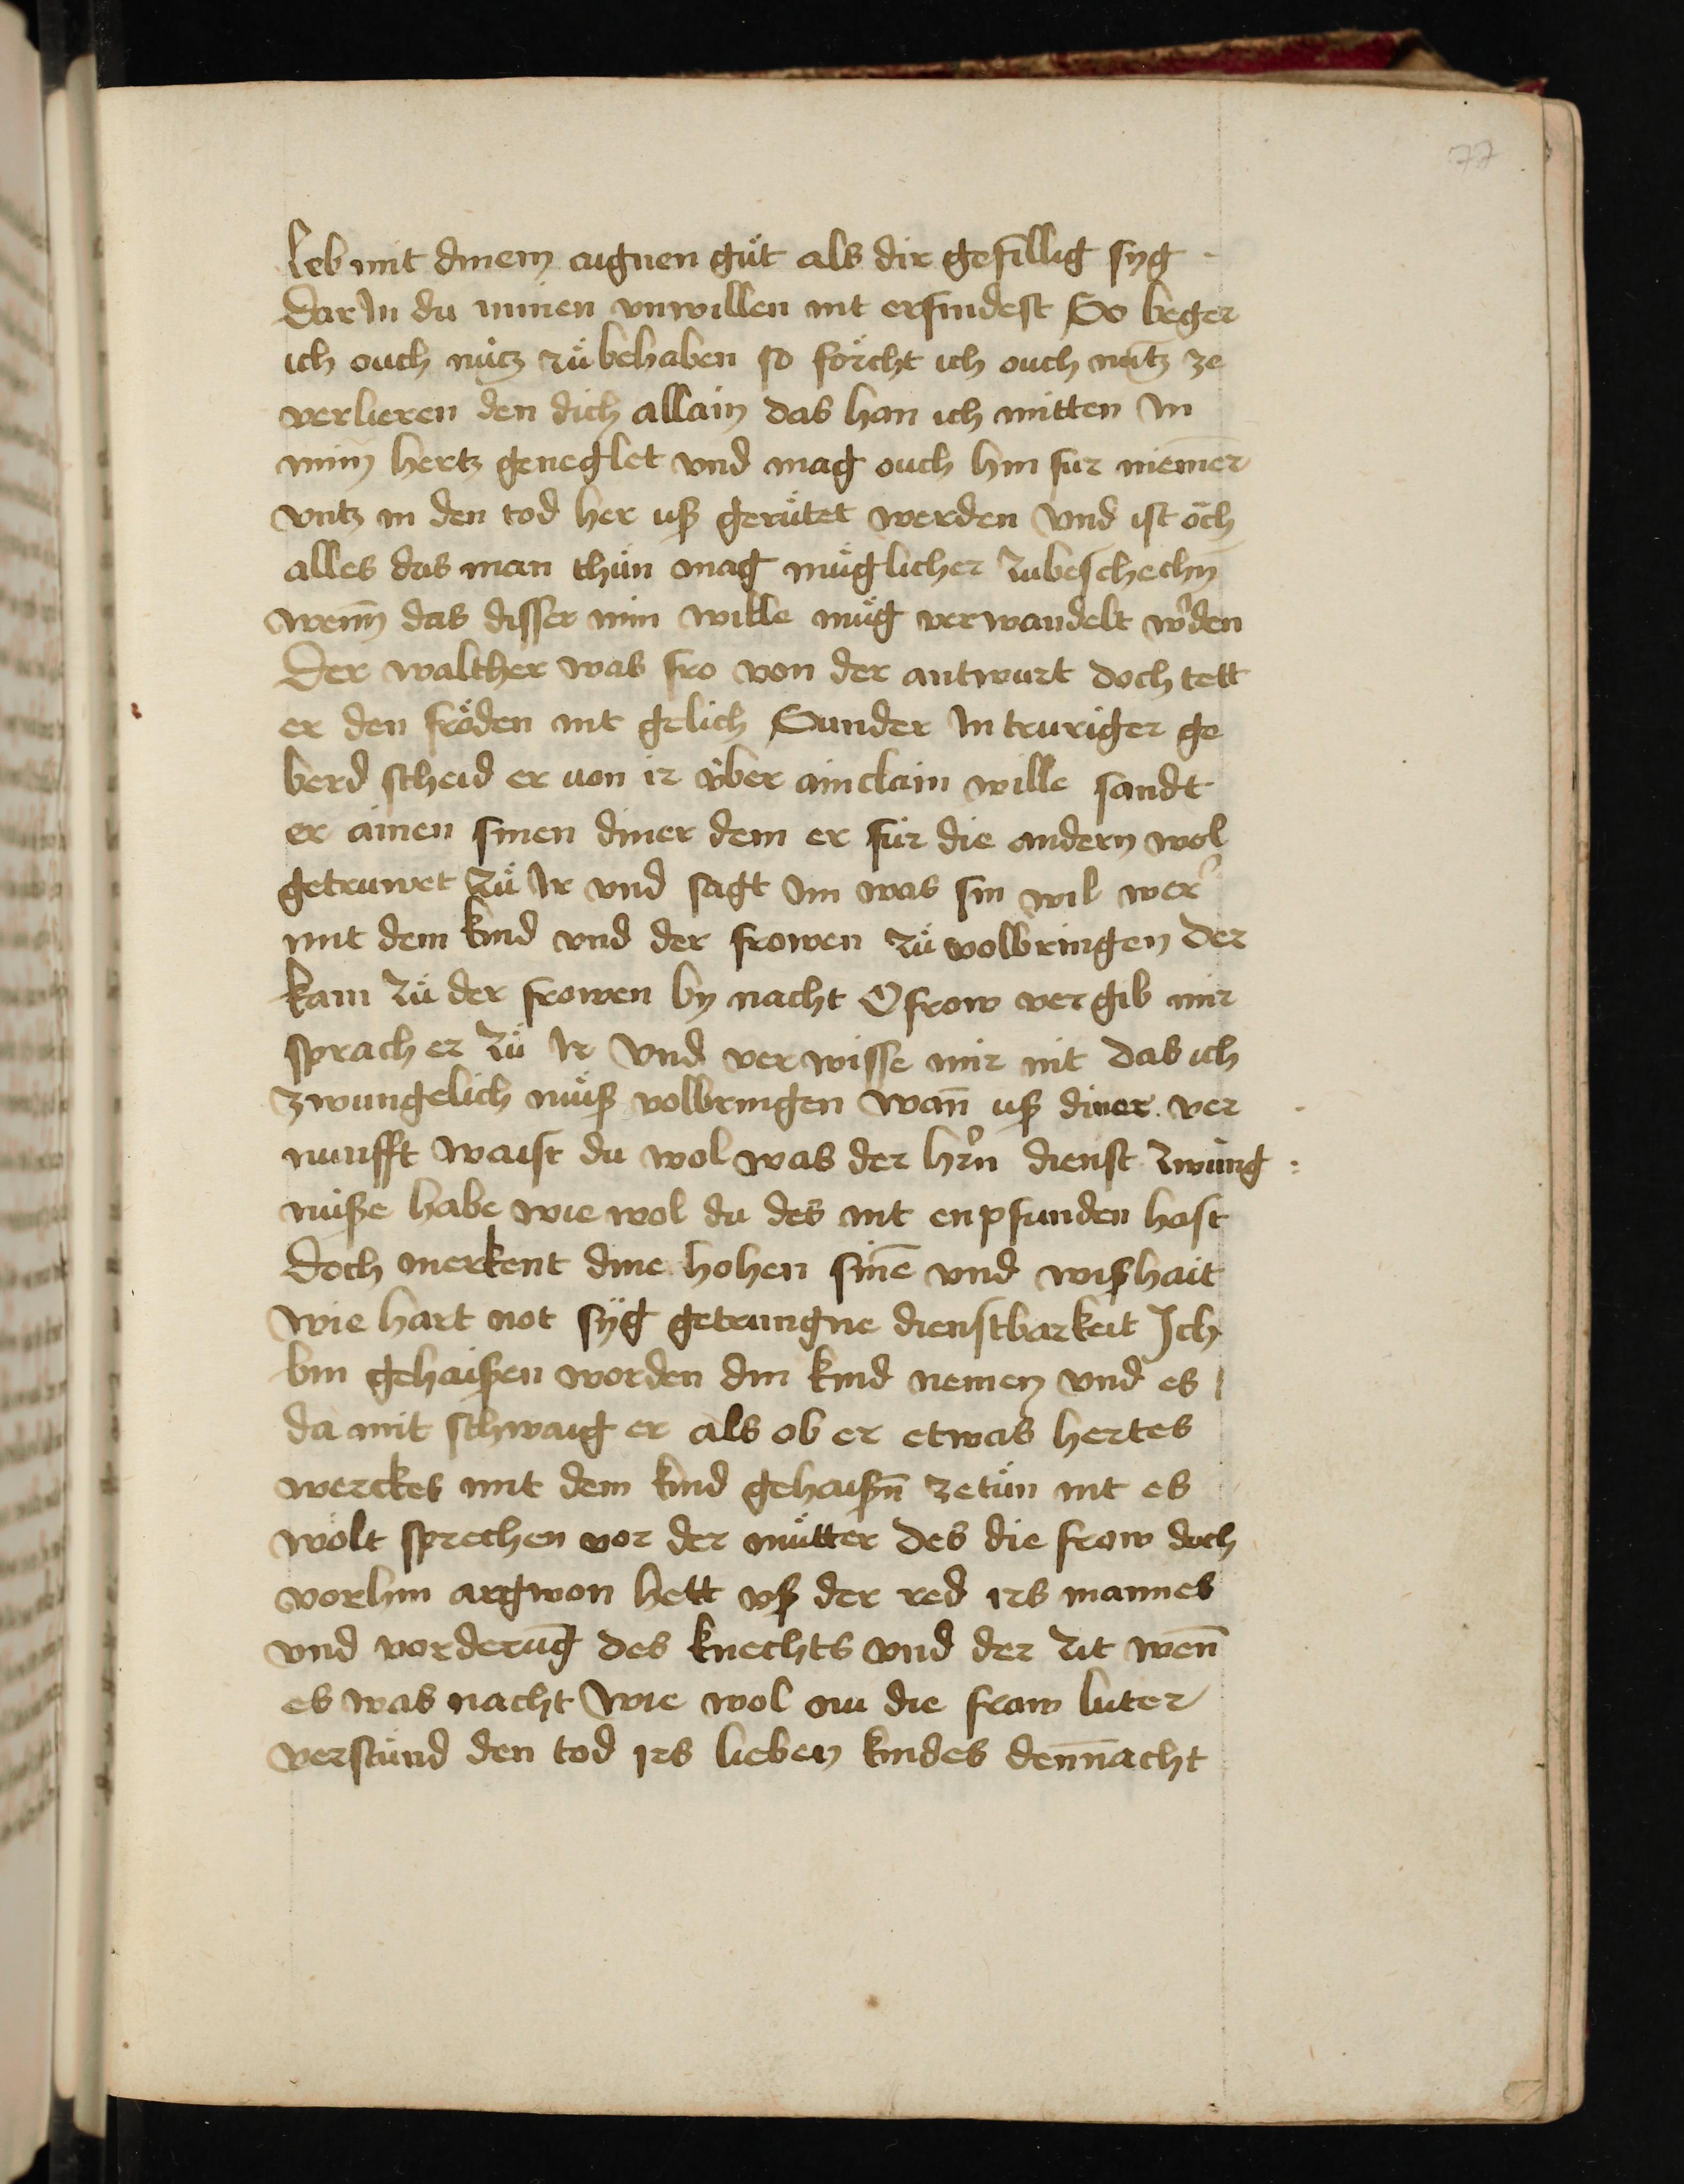 77
leb mit dinem aignen guͦt als dir gefellig syg
Dar In du minen vnwillen nit erfindest So beger
ich ouch nütz zuͦ behaben so förcht ich ouch nütz ze
verlieren den dich allain das han ich mitten In
min̄ hertz geneglet vnd mag ouch hin für niemer
vntz in den tod her uß gerütet werden Vnd ist öch
alles das man thuͦn mag müglicher zubeschechn̄
wenn̄ das disser min wille müg verwandelt w'den
Der walther was fro von der antwurt doch tett
er den fröden nit gelich Sunder In truriger ge
berd scheid er von ir über ain clain wille sandt
er ainen sinen diner dem er für die andern wol
getruwet zuͦ Ir vnd sagt Im was sin wil wer
mit dem kind vnd der frowen zuͦ volbringen Der
kam zuͦ der frowen by nacht O frow vergib mir
sprach er zuͦ Ir Vnd verwisse mir nit das ich
zwungelich muͦß volbringen wan̄ uß diner ver
nunfft waist du wol was der h'rn dienst zwüng
nüße habe wie wol du des nit enpfunden hast
Doch merkent dine hohen sine̅ vnd wißhait
wie hart not syg getrungne dienstbarkeit Ich
bin gehaißen worden din kind nemen vnd es
da mit schwaig er als ob er etwas hertes
werckes mit dem kind gehaißn̄ zetuͦn nit es
wölt sprechen vor der muͦtter des die frow doch
vorhin argwon hett vß der red irs mannes
vnd vorderu̅g des knechts vnd der zit wen̄
es was nacht Wie wol nu die frow luter
verstuͦnd den tod irs lieben kindes den̅nacht